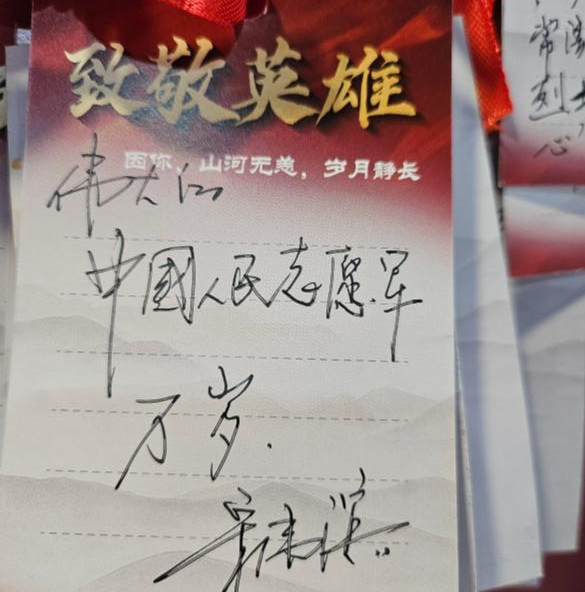 致敬英雄
因你，山河无恙，岁月静长
伟大的
中國人民志愿军
万岁.
常
烈士
心